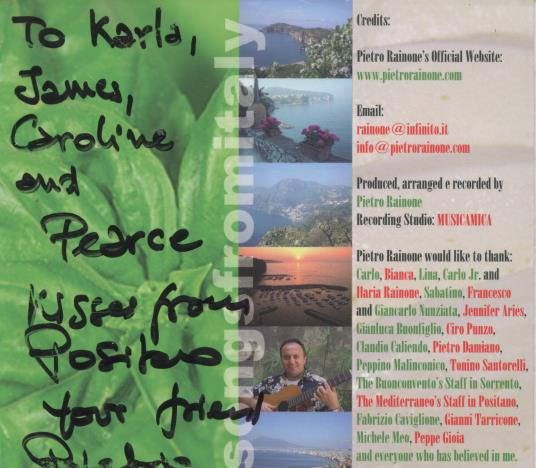 To Karla,
James,
Caroline
and
Pearce
Kisses from
Positano
your friend
songsfromitaly
Credits:
Pietro Rainone's Official Website:
www.pietrorainone.com
Email:
rainone@infinito.it
info@pietrorainone.com
Produced, arranged e recorded by
Pietro Rainone
Recording Studio: MUSICAMICA
Pietro Rainone would like to thank:
Carlo, Bianca, Lina, Carlo Jr. and
Ilaria Rainone, Sabatino, Francesco
and Giancarlo Nunziata, Jennifer Aries,
Gianluca Buonfiglio, Ciro Punzo,
Claudio Caliendo, Pietro Damiano,
Peppino Malinconico, Tonino Santorelli,
The Buonconvento's Staff in Sorrento,
The Mediterraneo's Staff in Positano,
Fabrizio Caviglione, Gianni Tarricone,
Michele Meo, Peppe Gioia
and everyone who has believed in me.